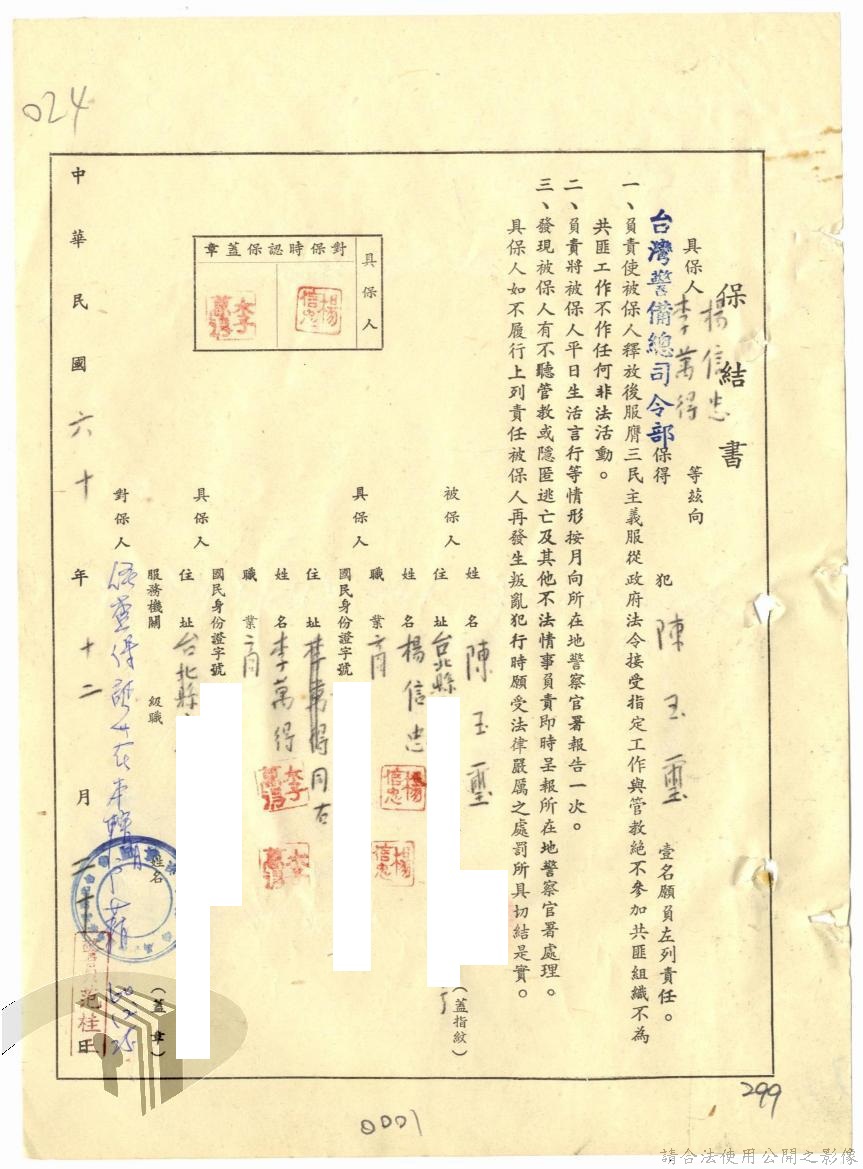 024
保結書
具保人 楊信忠 李萬得 等茲向
台灣警備總司令部 保得 犯 陳玉璽 壹名願負左列責任。
一、負責使被保人釋放後服膺三民主義服從政府法令接受指定工作與管教絕不參加共匪組織不為
共匪工作不作任何非法活動。
二、負責將被保人平日生活言行等情形按月向所在地警察官署報告一次。
三、發現被保人有不聽管教或隱匿逃亡及其他不法情事負責即時呈報所在地警察官署處理。
具保人如不履行上列責任被保人再發生叛亂犯行時願受法律嚴厲之處罰所具切結是實。
被保人 姓名 陳玉璽 (蓋指紋)
住址 台北縣
具保人 姓名 楊信忠 楊信忠 楊信忠
職業 商
國民身份證字號
住址 李萬得同右
具保人 姓名 李萬得 李萬得 李萬得
職業 商
國民身份證字號
住址 台北縣
對保人 服務機關 級職 姓名 (蓋章)
具保人
對保時認保蓋章
楊信忠
李萬得
范桂
中華民國六十年十二月二十日
299
0001
請合法使用公開之影像